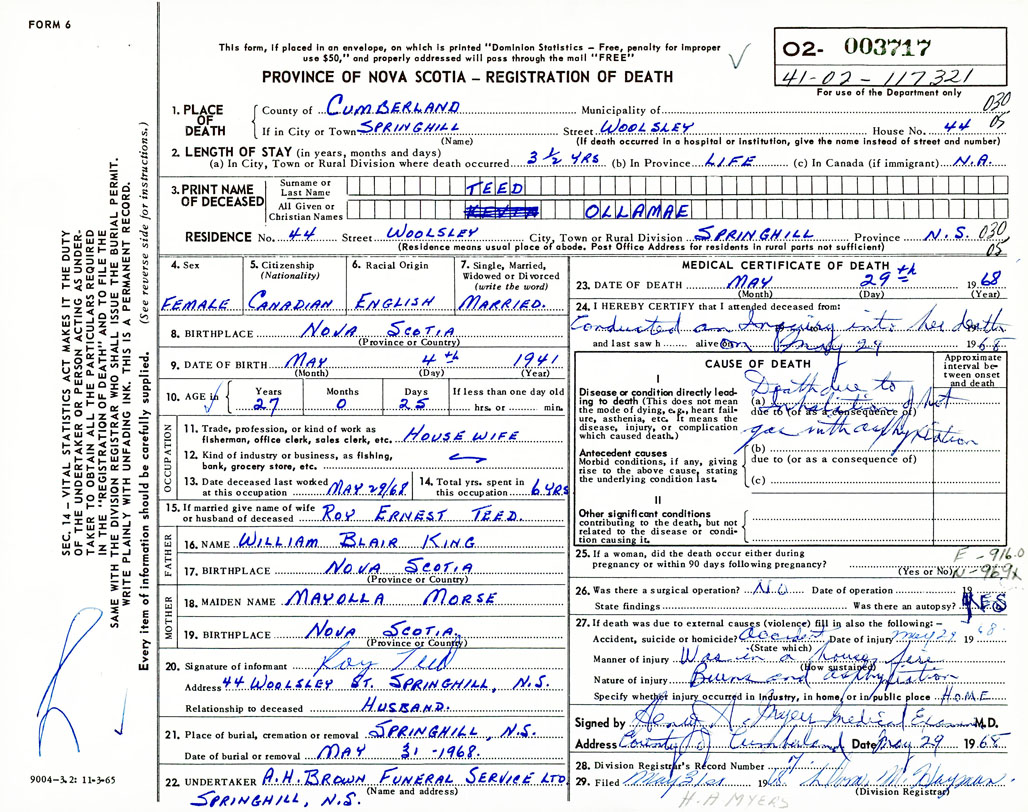 FORM 6
This form, if placed in an envelope, on which is printed "Dominion Statistics – Free, penalty for improper
use $50," and properly addressed will pass through the mail "FREE"
PROVINCE OF NOVA SCOTIA – REGISTRATION OF DEATH
02- 003717
41-02-117321
For use of the Department only
1. PLACE OF DEATH
County of CUMBERLAND Municipality of 030
If in City or Town SPRINGHILL Street WOOLSLEY House No. 44 05
(Name) (If death occurred in a hospital or institution, give the name instead of street and number)
2. LENGTH OF STAY (in years, months and days)
(a) In City, Town or Rural Division where death occurred 3 1/2 YRS (b) In Province LIFE (c) In Canada (if immigrant) N.A.
3. PRINT NAME OF DECEASED
Surname or Last Name TEED
All Given or Christian Names OLLAMAE
RESIDENCE No. 44 Street WOOLSLEY City, Town or Rural Division SPRINGHILL Province N.S. 030
(Residence means usual place of abode. Post Office Address for residents in rural parts not sufficient) 05
4. Sex
FEMALE
5. Citizenship (Nationality)
CANADIAN
6. Racial Origin
ENGLISH
7. Single, Married, Widowed or Divorced (write the word)
MARRIED.
8. BIRTHPLACE NOVA SCOTIA
(Province or Country)
9. DATE OF BIRTH MAY 4th 1941
(Month) (Day) (Year)
10. AGE in
Years Months Days If less than one day
27 0 25 hrs. or min.
OCCUPATION
11. Trade, profession, or kind of work as
fisherman, office clerk, sales clerk, etc. HOUSE WIFE
12. Kind of industry or business, as fishing,
bank, grocery store, etc.
13. Date deceased last worked
at this occupation MAY 29/68
14. Total yrs. spent in
this occupation 6 YRS
15. If married give name of wife
or husband of deceased ROY ERNEST TEED.
FATHER
16. NAME WILLIAM BLAIR KING
17. BIRTHPLACE NOVA SCOTIA
(Province or Country)
MOTHER
18. MAIDEN NAME MAYOLLA MORSE
19. BIRTHPLACE NOVA SCOTIA.
(Province or Country)
20. Signature of informant Roy Teed
Address 44 WOOLSLEY ST. SPRINGHILL, N.S.
Relationship to deceased HUSBAND.
21. Place of burial, cremation or removal SPRINGHILL, N.S.
Date of burial or removal MAY 31-1968.
22. UNDERTAKER A.H. BROWN FUNERAL SERVICE LTD.
(Name and address)
SPRINGHILL, N.S.
MEDICAL CERTIFICATE OF DEATH
23. DATE OF DEATH MAY 29th 1968
(Month) (Day) (Year)
24. I HEREBY CERTIFY that I attended deceased from:
Conducted an Inquiry into her death
and last saw h alive on May 29 1968
CAUSE OF DEATH
Approximate interval between onset and death
I
Disease or condition directly leading to death (This does not mean the mode of dying, e.g., heart failure, asthenia, etc. It means the disease, injury, or complication which caused death.)
(a) Death due to
due to (or as a consequence of) of hot
gas with asphyxiation
(b)
due to (or as a consequence of)
Antecedent causes
Morbid conditions, if any, giving rise to the above cause, stating the underlying condition last.
(c)
II
Other significant conditions
contributing to the death, but not related to the disease or condition causing it.
25. If a woman, did the death occur either during
pregnancy or within 90 days following pregnancy?
(Yes or No)
E-916.0
N-969X
26. Was there a surgical operation? NO Date of operation 19
State findings Was there an autopsy? YES
27. If death was due to external causes (violence) fill in also the following:–
Accident, suicide or homicide? Accident Date of injury May 29 1968
(State which)
Manner of injury Was in a house fire
(How sustained)
Nature of injury Burns and asphyxiation
Specify whether injury occurred in industry, in home, or in public place HOME
Signed by Medical M.D.
Address County of Cumberland Date May 29 1968
28. Division Registrar's Record Number 7
29. Filed May 31st 1968
(Division Registrar)
H.A MYERS
SEC. 14 – VITAL STATISTICS ACT MAKES IT THE DUTY
OF THE UNDERTAKER OR PERSON ACTING AS UNDER-
TAKER TO OBTAIN ALL THE PARTICULARS REQUIRED
IN THE "REGISTRATION OF DEATH" AND TO FILE THE
SAME WITH THE DIVISION REGISTRAR WHO SHALL ISSUE THE BURIAL PERMIT.
WRITE PLAINLY WITH UNFADING INK. THIS IS A PERMANENT RECORD.
Every item of information should be carefully supplied. (See reverse side for instructions.)
9004-3.2: 11-3-65